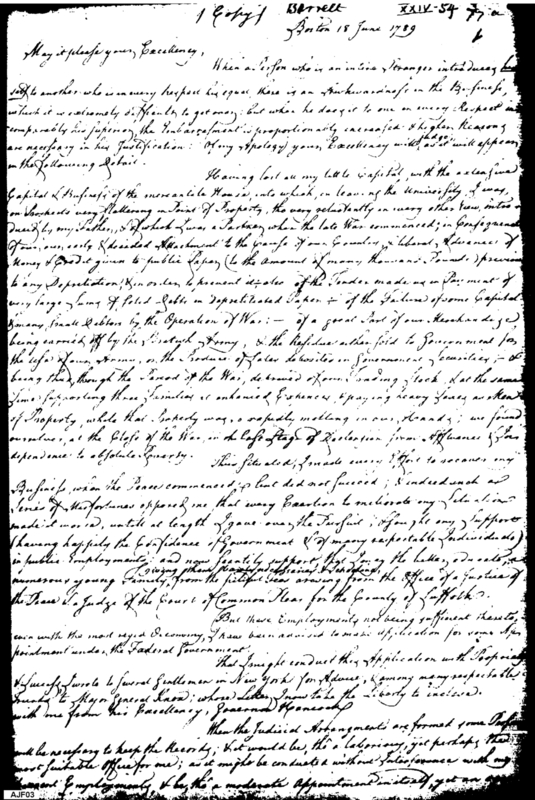 (Copy) Barrett XXIV-54
Boston 18 June 1789
May it please your Excellency,
When a Person who is an intire Stranger introduces him
self to another who is in every Respect his equal there is an Awkwardness in the Business,
which it is extremely difficult to get over: but when he does it to one in every Respect in
comparably his superior, the Embarrassment is proportionably increased & higher Reasons
are necessary in his Justification: Of my Apology your Excellency will judge, as it will appear
in the following Detail.
Having lost all my little Capital, with the extensive
Capital & Business of the mercantile House, into which, on leaving the University, I was,
on Prospects very flattering in Point of Property, tho very reluctantly in every other View, intro
duced by my Father, & of which I was a Partner when the late War commenced; in Consequence
of our early & decided Attachment to the Cause of our Country; liberal Advances of
Money & Credit given to public Paper (to the Amount of many thousand Pounds) previous
to any Depreciation, & in order to prevent it; of the Tender made us in Payment of
very large Sums of solid Debts in depreciated Paper; of the Failure of some Capital
& many small Debtors by the Operation of War:— of a good Part of our Merchandize
being carried off by the British Army, & the Residue either sold to Government for
the Use of our Army, or the Produce of Sales deposited in Government Securities;
being thus through the Period of the War, deprived of our Trading Stock, & at the same
Time supporting three Families at enhanced Expences, & paying heavy Taxes as Men
of Property, while that Property was rapidly melting in our Hands; we found
ourselves, at the Close of the War, in the last Stage of Declension from Affluence & Inde
pendence to absolute Poverty.
Thus situated, I made every Effort to recover my
Business, when the Peace commenced, but did not succeed; & indeed such a
Series of Misfortunes opposed me that every Exertion to meliorate my Situation
made it worse, until at length I gave over the Pursuit; & sought my Support
(having happily the Confidence of Government & of many respectable Individuals)
in public Employments; and now scantily support
numerous young Family, from the Fees arising from the Office of a Justice of
the Peace & a Judge of the Court of Common Pleas for the County of Suffolk.
But these Employments not being sufficient thereto,
even with the most rigid Oeconomy, I have been advised to make Application for some Ap
pointment under the Federal Government.
That I might conduct this Application with Propriety
& Success, I wrote to several Gentlemen in New York for Advice, & among many respectable
to Major General Knox; whose Letter I now take the Liberty to inclose
with one from his Excellency, Governor Hancock.
When the Judicial Arrangments are formed some Person
will be necessary to keep the Records; & it would be, tho' a laborious, yet perhaps, the
most suitable Office for me; as it might be conducted without Interference with my
present Employments, & be tho' a moderate Appointment in itself, yet an
AJF03